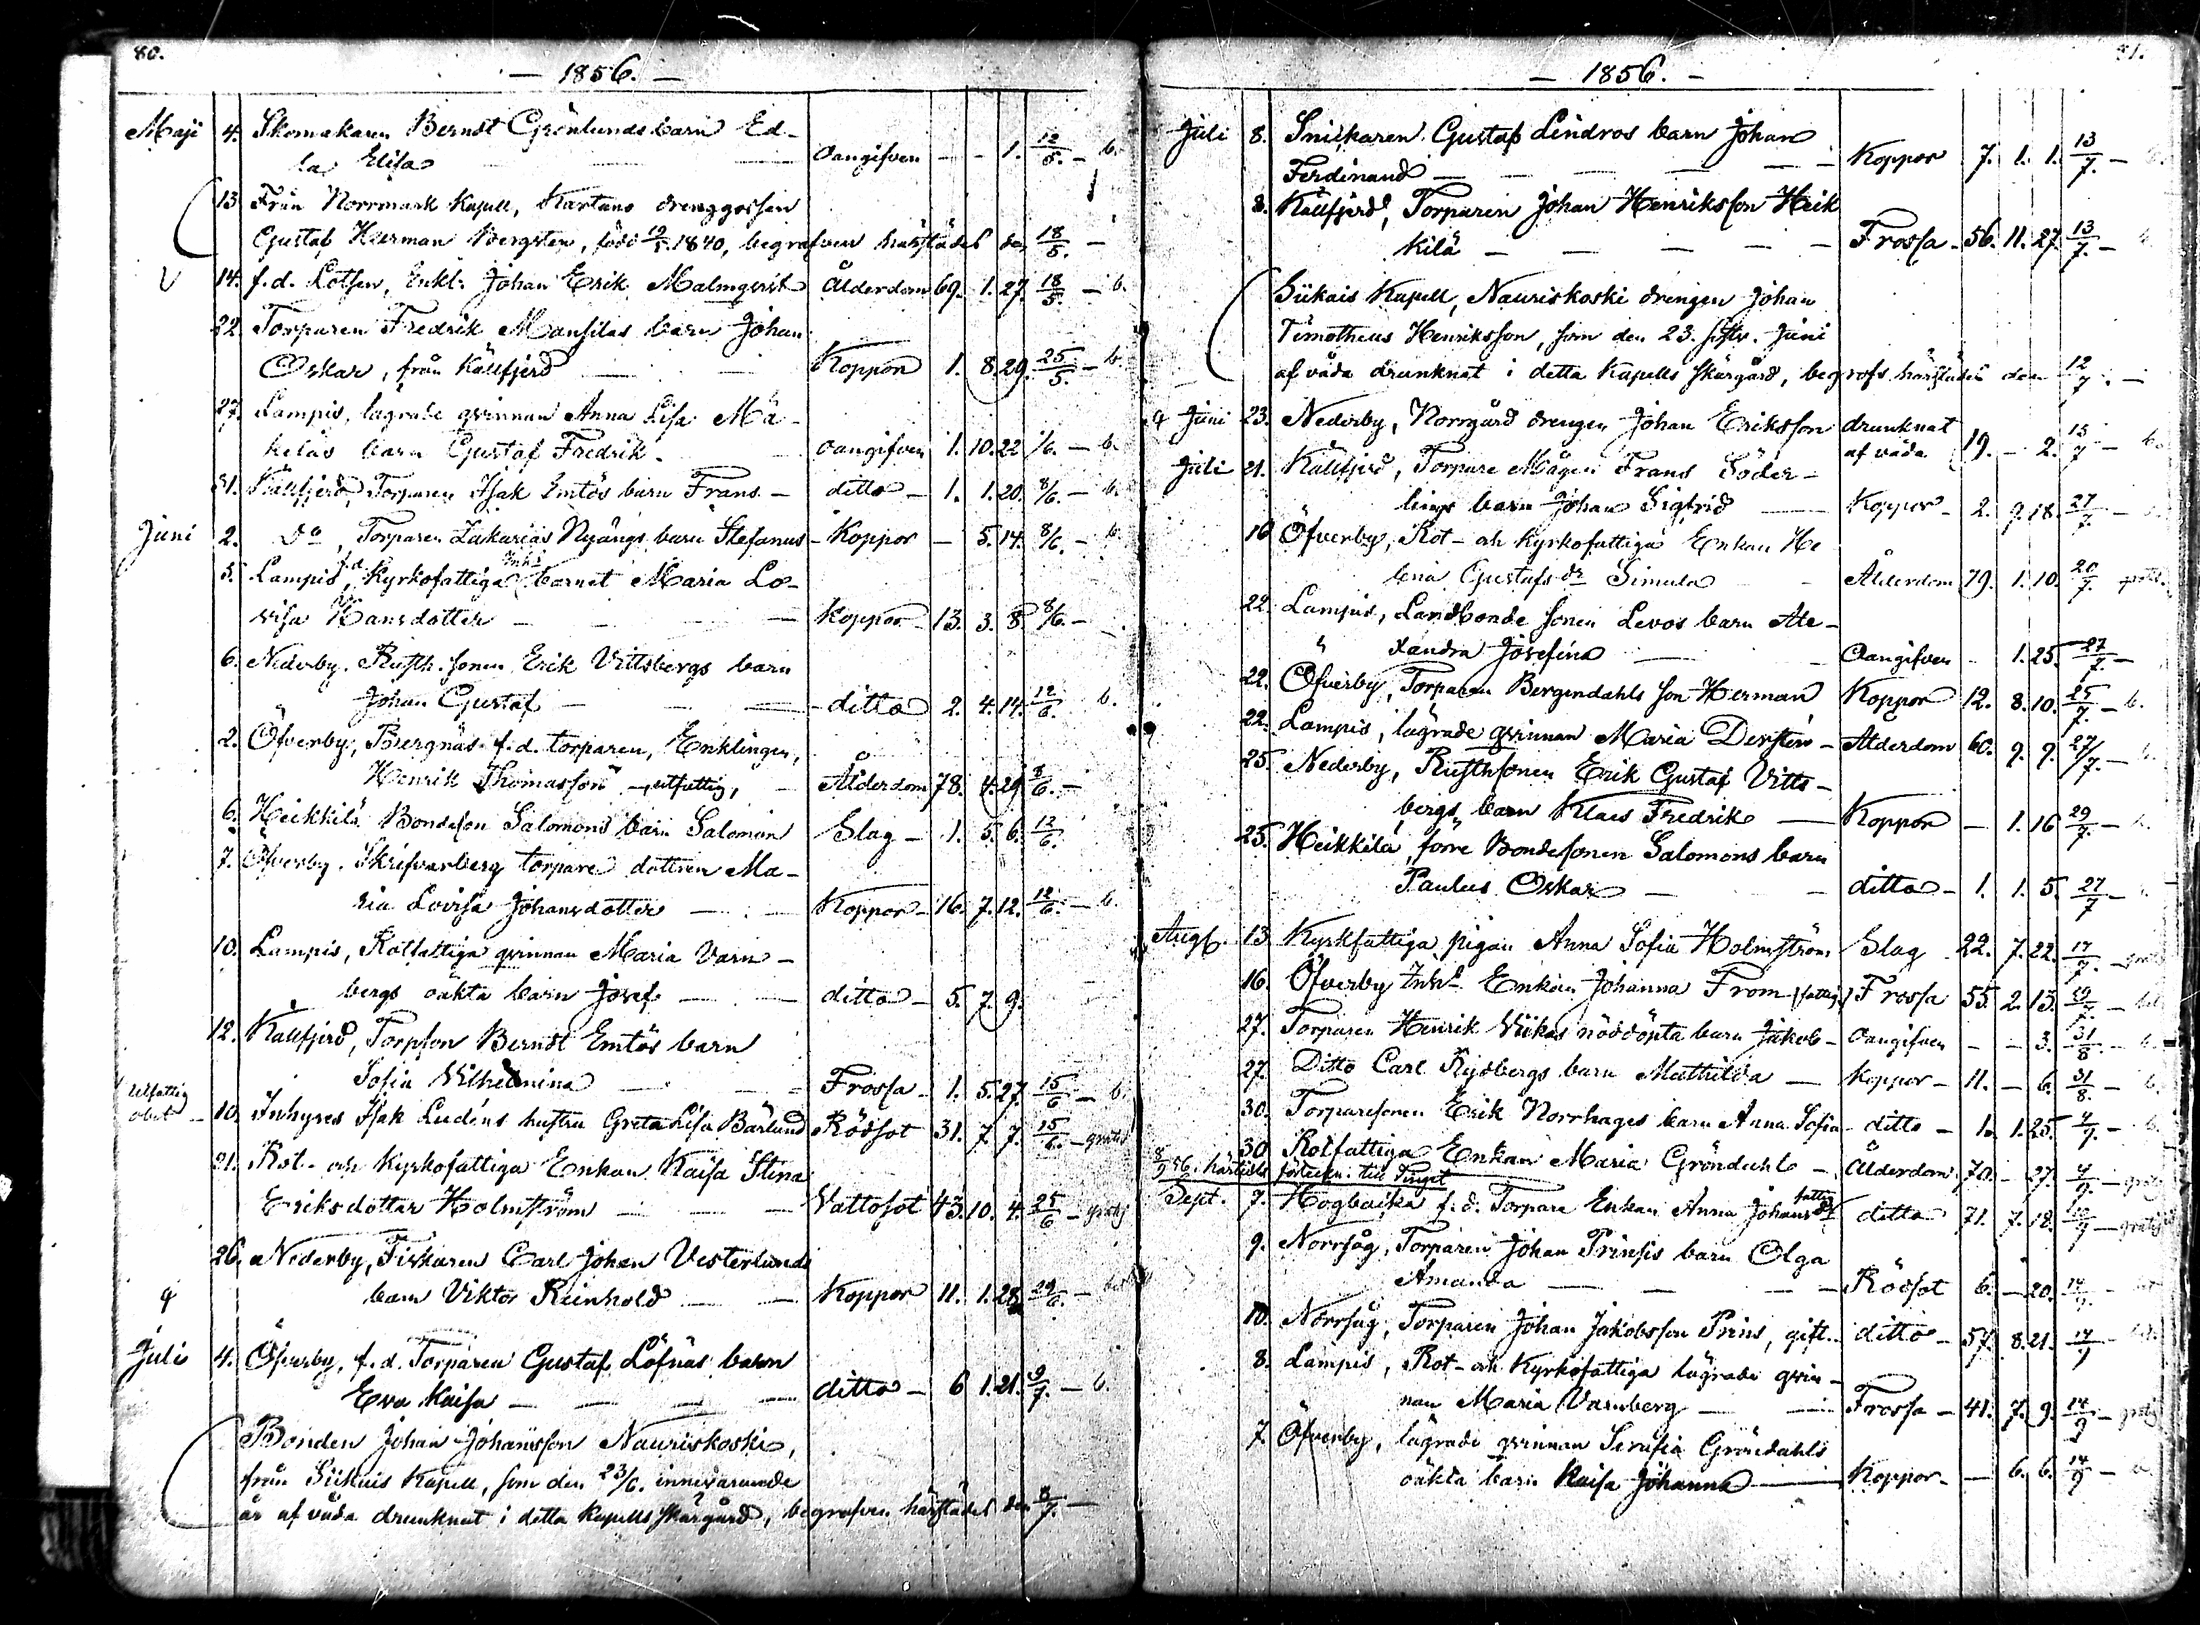 80.
— 1856. —
Maji 4. Skomakaren Berndt Grönlunds barn Ed-
la Elisa — — oangifven — - 1. 12/5. — b.
13. Från Norrmark Kapell, Kartano drenggossen
Gustaf Herman Bergsten, född 1840, begrafven härstädes den 18/5. —
V 14. f.d. Lotsen, Enkl. Johan Erik Malmqvist Ålderdom 69. 1. 27. 18/5 — b.
22. Torparen Fredrik Mansilas barn Johan
Oskar, från Källfjerd — Koppor 1. 8. 29. 25/5. — b.
27. Lampis, lägrade qvinnan Anna Lisa Mä-
keläs barn Gustaf Fredrik. oangifven 1. 10. 22 1/6. — b.
31. Källfjerd, Torparen Isak Emtös barn Frans — ditto — 1. 1. 20. 8/6. — b.
Juni 2. Do, Torparen Zakarias Nyängs barn Stefanus — Koppor — 5. 14. 8/6. — b.
5. Lampis, f.d. Kyrkofattiga barnet Maria Lo-
visa Hansdotter — — Koppor 13. 3. 8 8/6. —
6. Nederby. Rusth. sonen Erik Vittsbergs barn
Johan Gustaf — — ditto 2. 4. 14. 12/6. b.
2. Öfverby, Bergnäs f.d. torparen, Enklingen,
Henrik Thomasson —, utfattig, — Ålderdom 78. 4. 29 8/6. —
6. Heikkilä Bondeson Salomons barn Salomon Slag — 1. 5. 6. 12/6.
7. Öfverby. Skrifvarberg torpare dottren Ma-
ria Lovisa Johansdotter — Koppor — 16. 7. 12. 12/6. — b.
10. Lampis, Rotfattiga qvinnan Maria Varn-
bergs oäkta barn Josef — ditto — 5. 7. 9.
12. Källfjerd, Torpson Berndt Emtös barn
Sofia Vilhelmina — Frossa — 1. 5. 27. 15/6 — b.
Utfattig
obet — 10. Inhyses Isak Ludéns hustru Greta Lisa Bärlund Rödsot 31. 7. 7. 15/6. — gratis
21. Rot- och Kyrkofattiga Enkan Kaisa Stina
Eriksdotter Holmström — Vattosot 43. 10. 4. 25/6 — gratis
26. Nederby, Fiskaren Carl Johan Vesterlunds
barn Viktor Reinhold — Koppor 11. 1. 28. 29/6. —
Juli 4. Öfverby, f.d. Torparen Gustaf Löfnäs barn
Eva Kaisa — — ditto — 6 1. 21. 9/7 — b.
Bonden Johan Johansson Nauriskoski,
från Siikais Kapell, som den 23/6. innevarande
år af våda drunknat i detta kapells skärgård, begrafven härstädes den 8/7. —
81.
— 1856. —
Juli 8. Snickaren Gustaf Lindros barn Johan
Ferdinand — — Koppor 7. 1. 1. 13/7. —
8. Källfjerd, Torparen Johan Henriksson Heik
kilä — — — Frossa — 56. 11. 27. 13/7. —
Siikais Kapell, Nauriskoski drengen Johan
Timotheus Henriksson, som den 23. sistv. Juni
af våda drunknat i detta Kapells skärgård, begrofs härstädes den 12/7. —
Juni 23. Nederby, Norrgård drengen Johan Eriksson drunknat
af våda 19. — 2. 13/7 — b.
Juli 21. Källfjerd, Torpare Mågen Frans Söder-
lings barn Johan Sigfrid — Koppor — 2. 9. 18. 27/7. —
16 Öfverby, Rot- och Kyrkofattiga Enkan He
lena Gustafsdr Simula Ålderdom 79. 1. 10. 20/7.
22. Lampis, Landbonde sonen Levos barn Ale-
xandra Josefina — Oangifven — 1. 25. 27/7. —
22. Öfverby, Torparen Bergendahls son Herman Koppor 12. 8. 10. 25/7. — b.
22. Lampis, lägrade qvinnan Maria — Ålderdom 60. 9. 9. 27/7. —
25. Nederby, Rusthsonen Erik Gustaf Vitts-
bergs barn Klaes Fredrik — Koppor — 1. 16 29/7. —
25. Heikkilä, förre Bondesonen Salomons barn
Paulus Oskar — — ditto — 1. 1. 5. 27/7 —
Aug. 13. Kyrkfattiga pigan Anna Sofia Holmström Slag 22. 7. 22. 17/7. —
16. Öfverby Inhs Enkan Johanna From (fattig) Frossa 55. 2. 13.
27. Torparen Henrik Viikas nöddöpta barn Jakob — oangifven — — 3. 31/8. —
27. Ditto Carl Rydbergs barn Mathilda — Koppor — 11. — 6. 31/8. — b.
30. Torparesonen Erik Norrhages barn Anna Sofia — ditto — 1. 1. 25. 7/9. — b.
30 Rotfattiga Enkan Maria Gröndahl — Ålderdom 70. — 27. 7/9. —
8/9 56. härtills förteckn. till Tinget
Sept. 7. Hogbacka f.d. Torpare Enkan Anna Johansdr fattig ditto 71. 7. 18. — gratis
9. Norrsåg, Torparen Johan Prinsis barn Olga
Amanda — — Rödsot 6. — 20. 14/9.
10. Norrsåg, Torparen Johan Jakobsson Prins, gift. ditto — 57. 8. 21. 14/9
8. Lampis, Rot- och Kyrkofattiga lägrade qvin-
nan Maria Varnberg — Frossa — 41. 7. 9. 14/9 — gratis
7. Öfverby, lägrade qvinnan Serafia Gröndahls
oäkta barn Kaisa Johanna — Koppor — — 6. 6. 14/9 —